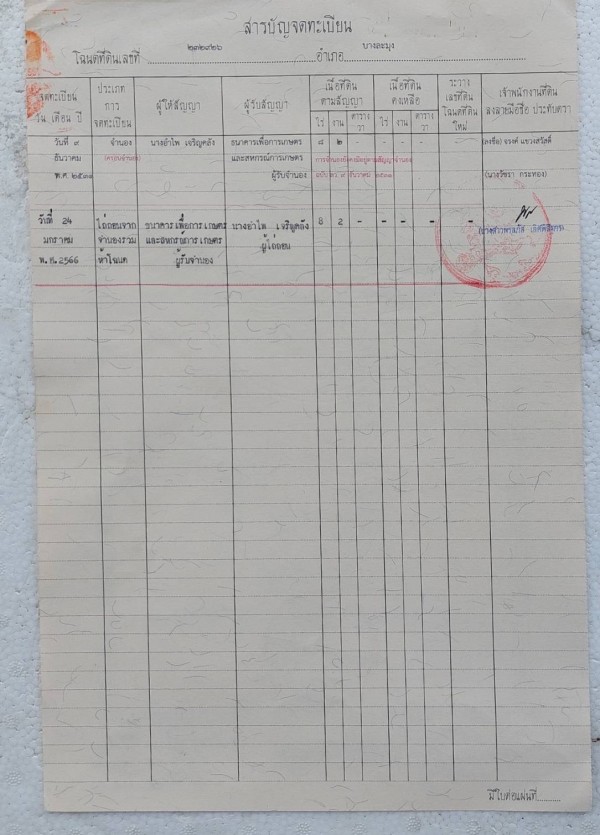 สารบัญจดทะเบียน
โฉนดที่ดินเลขที่ ๒๓๒๗๒๖ อำเภอ บางละมุง
จดทะเบียน วัน เดือน ปี
ประเภท การ จดทะเบียน
ผู้ให้สัญญา
ผู้รับสัญญา
เนื้อที่ดิน ตามสัญญา
ไร่ งาน ตาราง วา
เนื้อที่ดิน คงเหลือ
ไร่ งาน ตาราง วา
ระวาง เลขที่ดิน โฉนดที่ดิน ใหม่
เจ้าพนักงานที่ดิน ลงลายมือชื่อ ประทับตรา
วันที่ ๙ จำนอง นางอำไพ เจริญคลัง ธนาคารเพื่อการเกษตร ๘ ๒ - - - - - (ลงชื่อ) จรงค์ แขวงสวัสดิ์
ธันวาคม (ครอบจำนอง) และสหกรณ์การเกษตร
พ.ศ. ๒๕๓๑ ผู้รับจำนอง ธันวาคม ๒๕๓๑ (นางวัชรา กระทอง)
วันที่ 24 ไถ่ถอนจาก ธนาคารเพื่อการเกษตร นางอำไพ เจริญคลัง 8 2 - - - - -
มกราคม จำนองรวม และสหกรณ์การเกษตร ผู้ไถ่ถอน
พ.ศ.2566 ห้าโฉนด ผู้รับจำนอง
มีใบต่อแผ่นที่